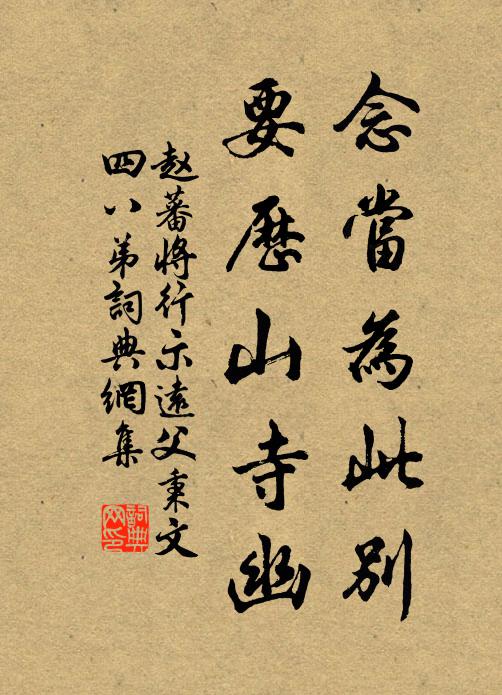 念當為此別
要歷山寺幽
赵蕃將行示遠父秉文
四八弟詞典網集
詞典網印